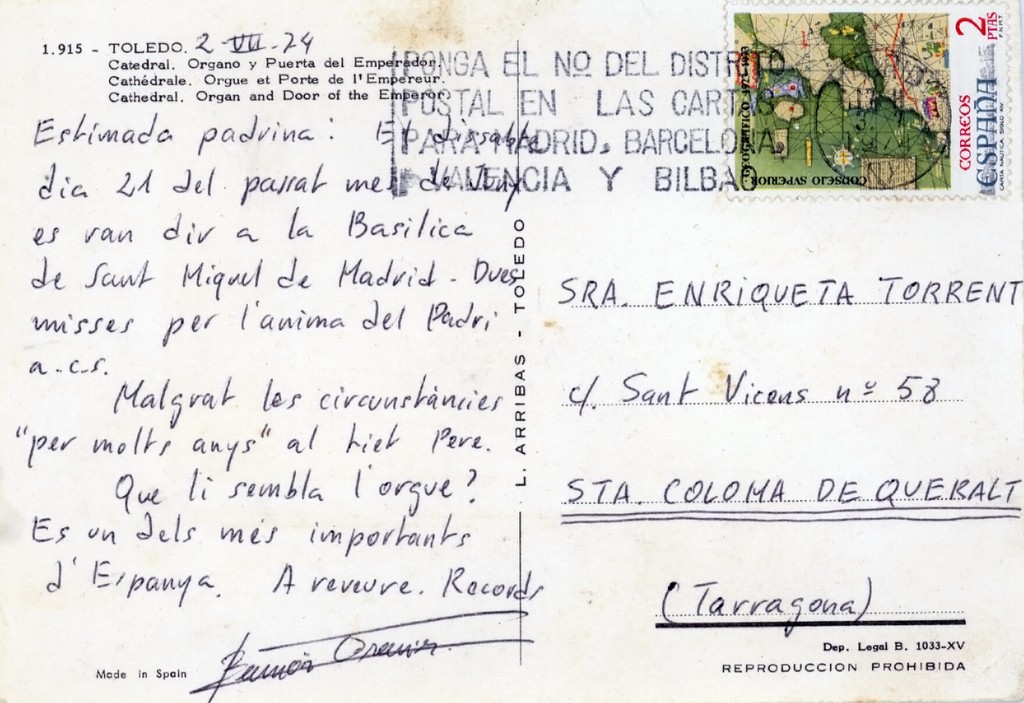 1.915 – TOLEDO. 2-VII-74
Catedral. Organo y Puerta del Emperador.
Cathédrale. Orgue et Porte de l'Empereur.
Cathedral. Organ and Door of the Emperor.
Estimada padrina: El dissabte
dia 21 del passat mes de Juny
es van dir a la Basilica
de Sant Miquel de Madrid - Dues
misses per l'anima del Padri
a.c.s.
Malgrat les circunstàncies
"per molts anys" al tiet Pere.
Que li sembla l'orgue?
Es un dels més importants
d'Espanya. A reveure. Records
Ramón
Made in Spain
L. ARRIBAS - TOLEDO
PONGA EL Nº DEL DISTRITO
POSTAL EN LAS CARTAS
PARA MADRID, BARCELONA,
VALENCIA Y BILBAO
2 PTAS
F.N.M.T.
CORREOS
ESPAÑA
CARTA NAUTICA SIGLO XV
CONSEJO SVPERIOR
GEOGRAFICO 1923-1973
SRA. ENRIQUETA TORRENT
c/. Sant Vicens nº 58
STA. COLOMA DE QUERALT
(Tarragona)
Dep. Legal B. 1033-XV
REPRODUCCION PROHIBIDA